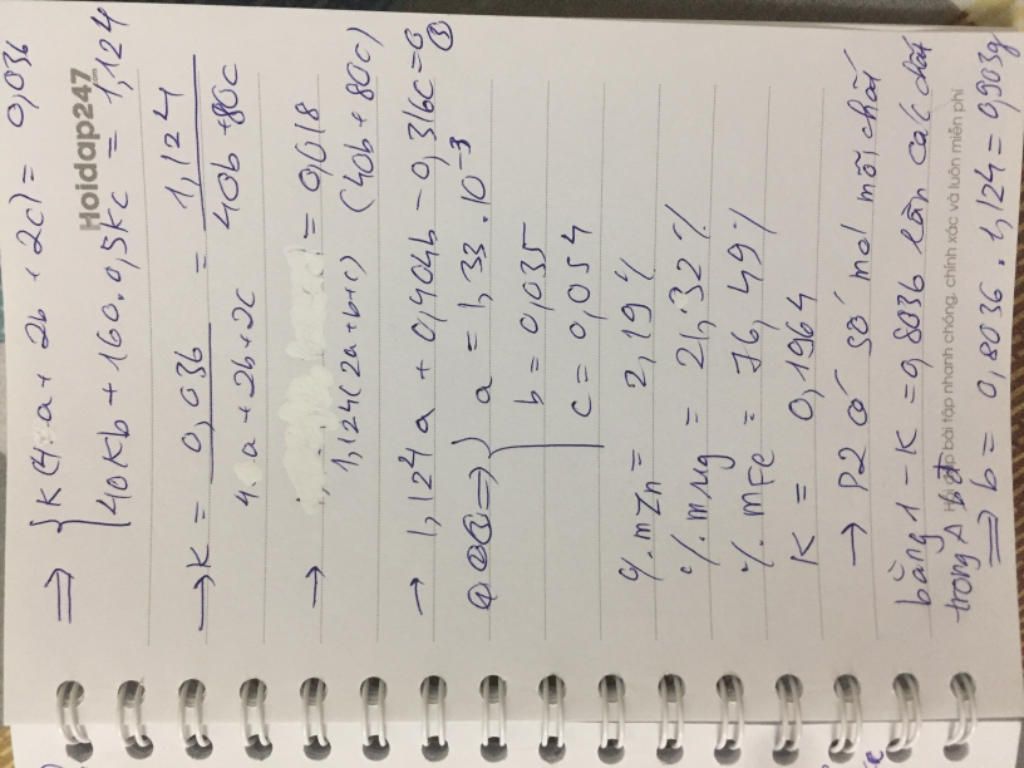 ⇒ { K(4a + 2b + 2c) = 0,036
40Kb + 160.0,5Kc = 1,124
Hoidap247
→ K = 0,036 / 4a + 2b + 2c = 1,124 / 40b + 80c
→ = 0,018
1,124(2a+b+c) (40b + 80c)
→ 1,124a + 0,404b - 0,316c = 0 ③
①②③ ⇒ { a = 1,33 . 10⁻³
b = 0,035
c = 0,054
%mZn = 2,19%
%mMg = 21,32%
%mFe = 76,49%
K = 0,1964
→ P2 có số mol mỗi chất
bằng 1 - K = 0,8036 lần các chất
trong A bđ
bài tập nhanh chóng, chính xác và luôn miễn phí
⇒ b = 0,8036 . 1,124 = 0,903g